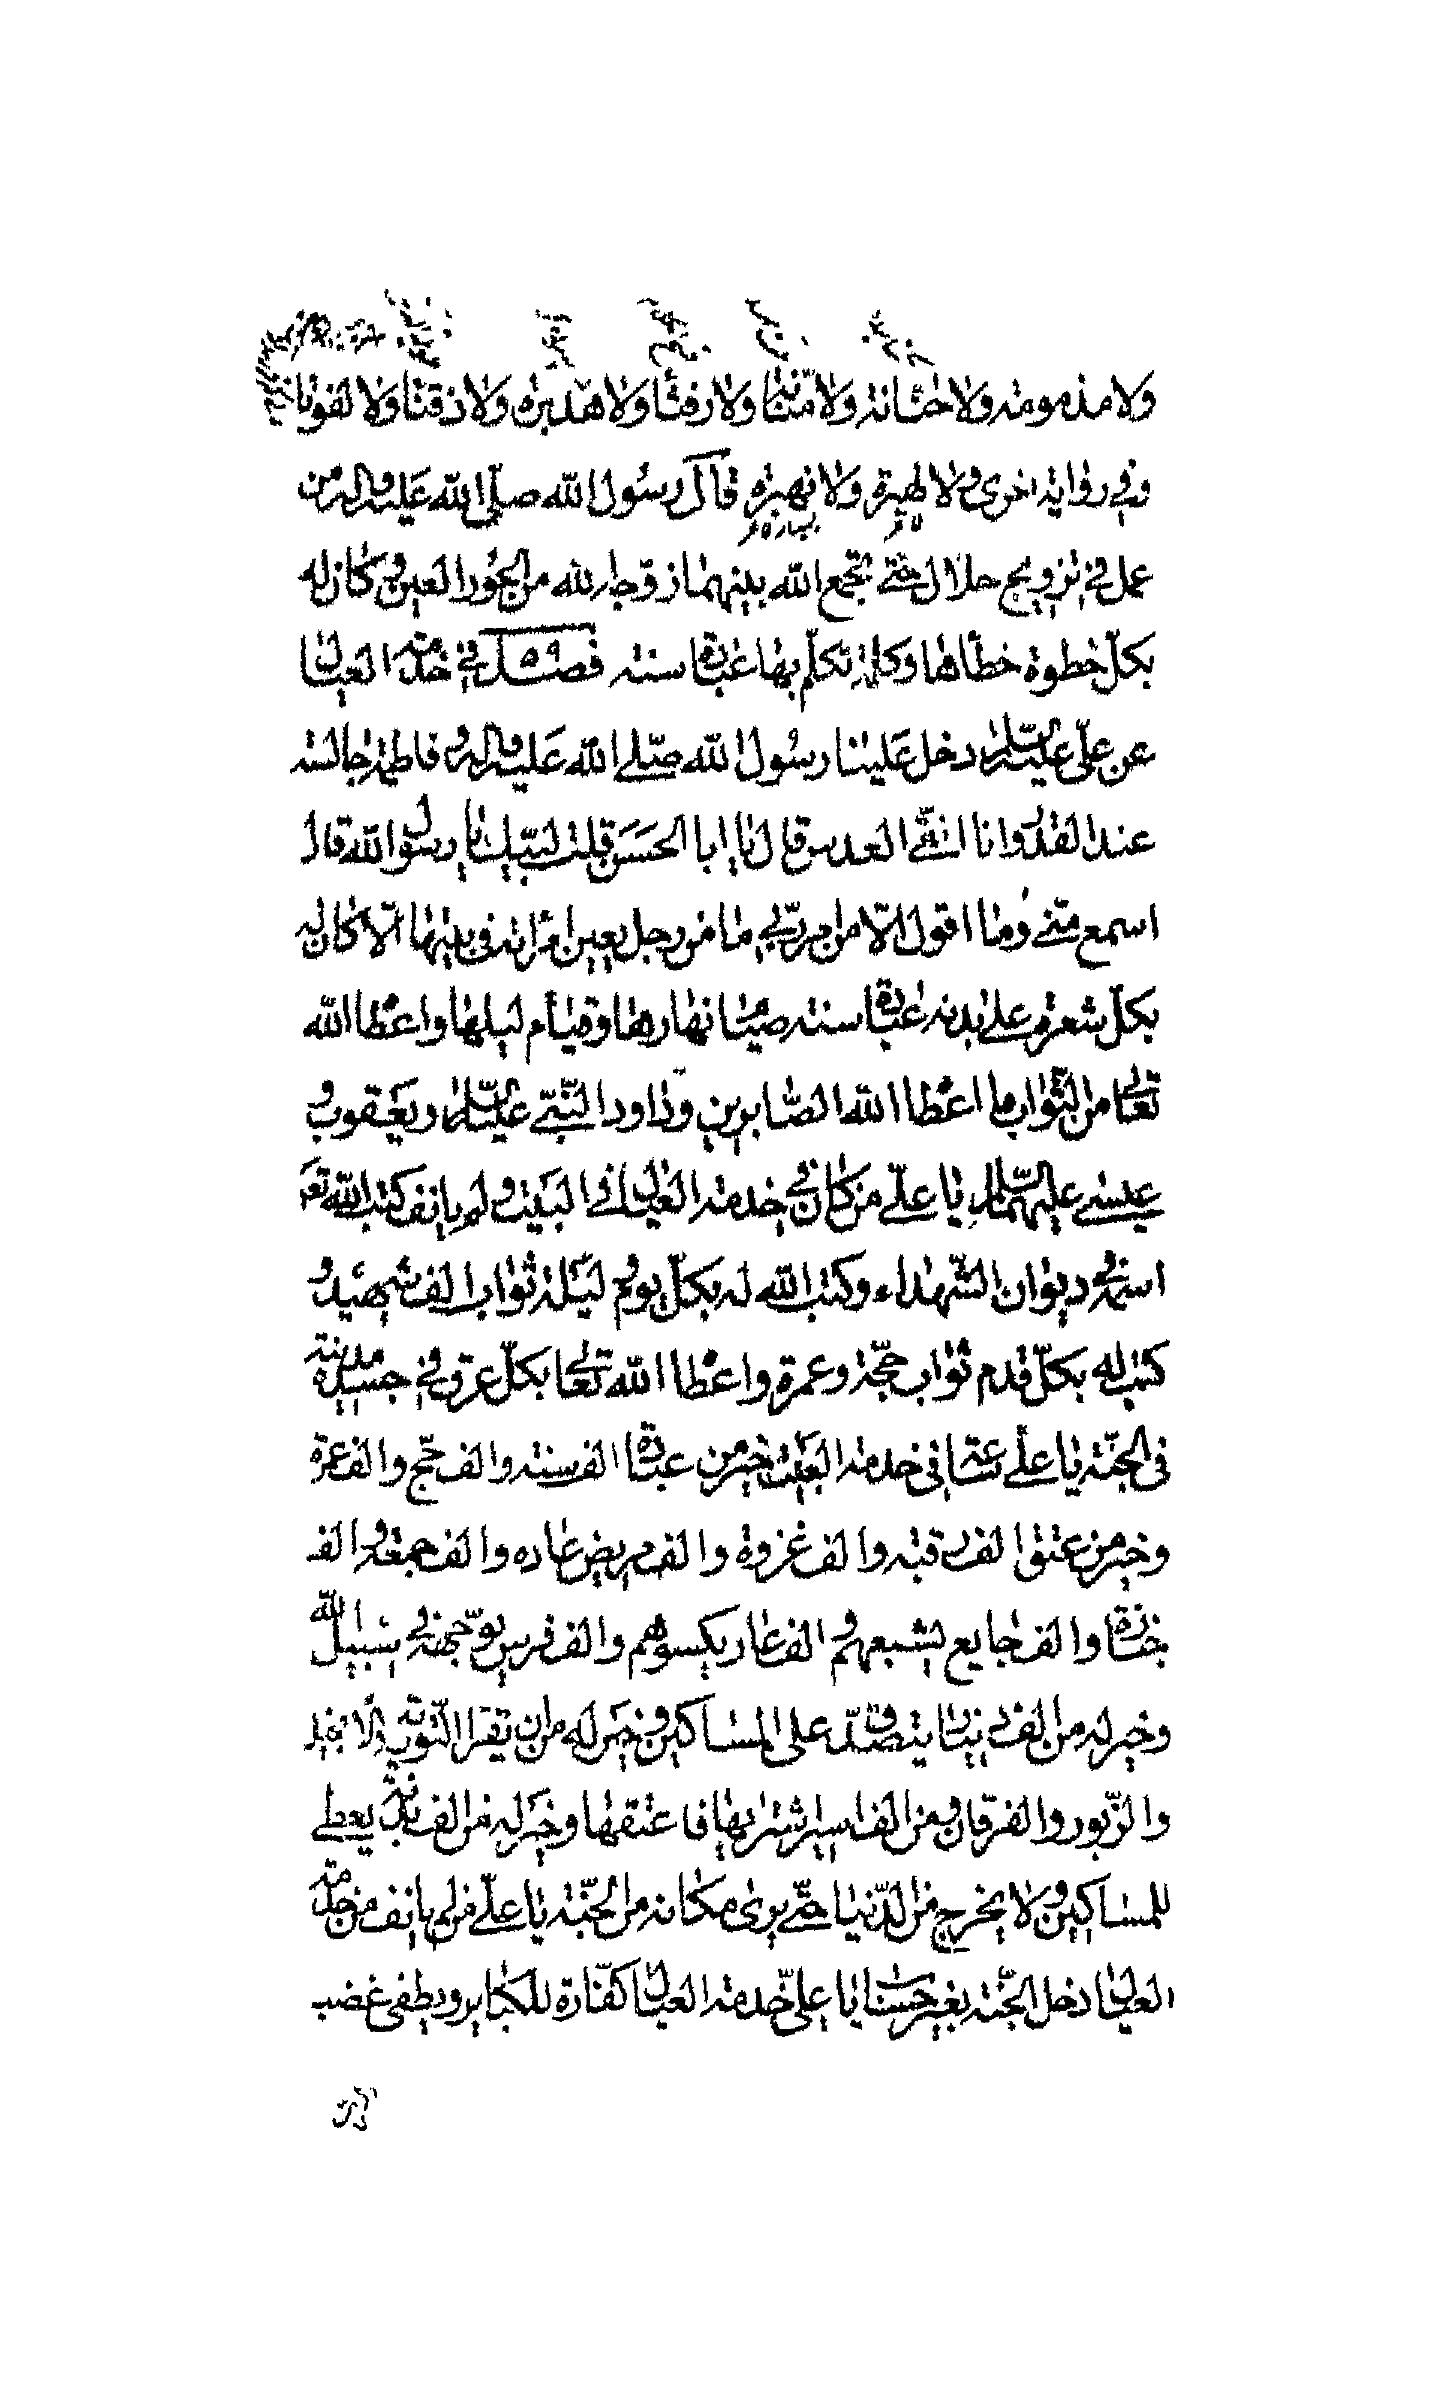 ولا مذمومة ولا حنّانة ولا منّانا ولا رفثا ولا هيدبره ولا ذقنا ولا لفوتا
وفي رواية اخرى ولا لهبرة ولا نهبره قال رسول الله صلّى الله عليه واله من
عمل في تزويج حلال حتّى يجمع الله بينهما زوّجه الله من الحور العين وكان له
بكلّ خطوة خطاها وكلمة تكلّم بها عبادة سنة فصل ٥٩ في خدمة العيال
عن علي عليه السّلام دخل علينا رسول الله صلّى الله عليه واله وفاطمة جالسة
عند القدر وانا انقّي العدس قال يا ابا الحسن قلت لبّيك يا رسول الله قال
اسمع منّي وما اقول الّا من امر ربّي ما من رجل يعين امراته في بيتها الّا كان له
بكلّ شعرة على بدنه عبادة سنة صيام نهارها وقيام ليلها واعطاه الله
تعالى من الثّواب ما اعطاه الله الصّابرين وداود النّبيّ عليه السّلام ويعقوب و
عيسى عليهم السّلام يا عليّ من كان في خدمة العيال في البيت ولم يانف كتب الله تع
اسمه في ديوان الشّهداء وكتب الله له بكلّ يوم و ليلة ثواب الف شهيد و
كتب له بكلّ قدم ثواب حجّة وعمرة واعطاه الله تعالى بكلّ عرق في جسده مدينة
في الجنّة يا عليّ ساعة في خدمة البيت خير من عبادة الف سنة والف حجّ والف عمرة
وخير من عتق الف رقبة والف غزوة والف مريض عاده والف جمعة والف
جنازة والف جايع يشبعهم و الف عار يكسوهم والف فرس يوجّهه في سبيل الله
وخير له من الف دينار يتصدّق على المساكين وخير له من ان يقرا التّورية والانجيل
والزّبور والفرقان ومن الف اسير اشتراها فاعتقها وخير له من الف بدنة يعطي
للمساكين ولا يخرج من الدّنيا حتّى يرى مكانه من الجنّة يا عليّ من لم يانف من خدمة
العيال دخل الجنّة بغير حساب يا عليّ خدمة العيال كفّارة للكباير ويطفى غضب